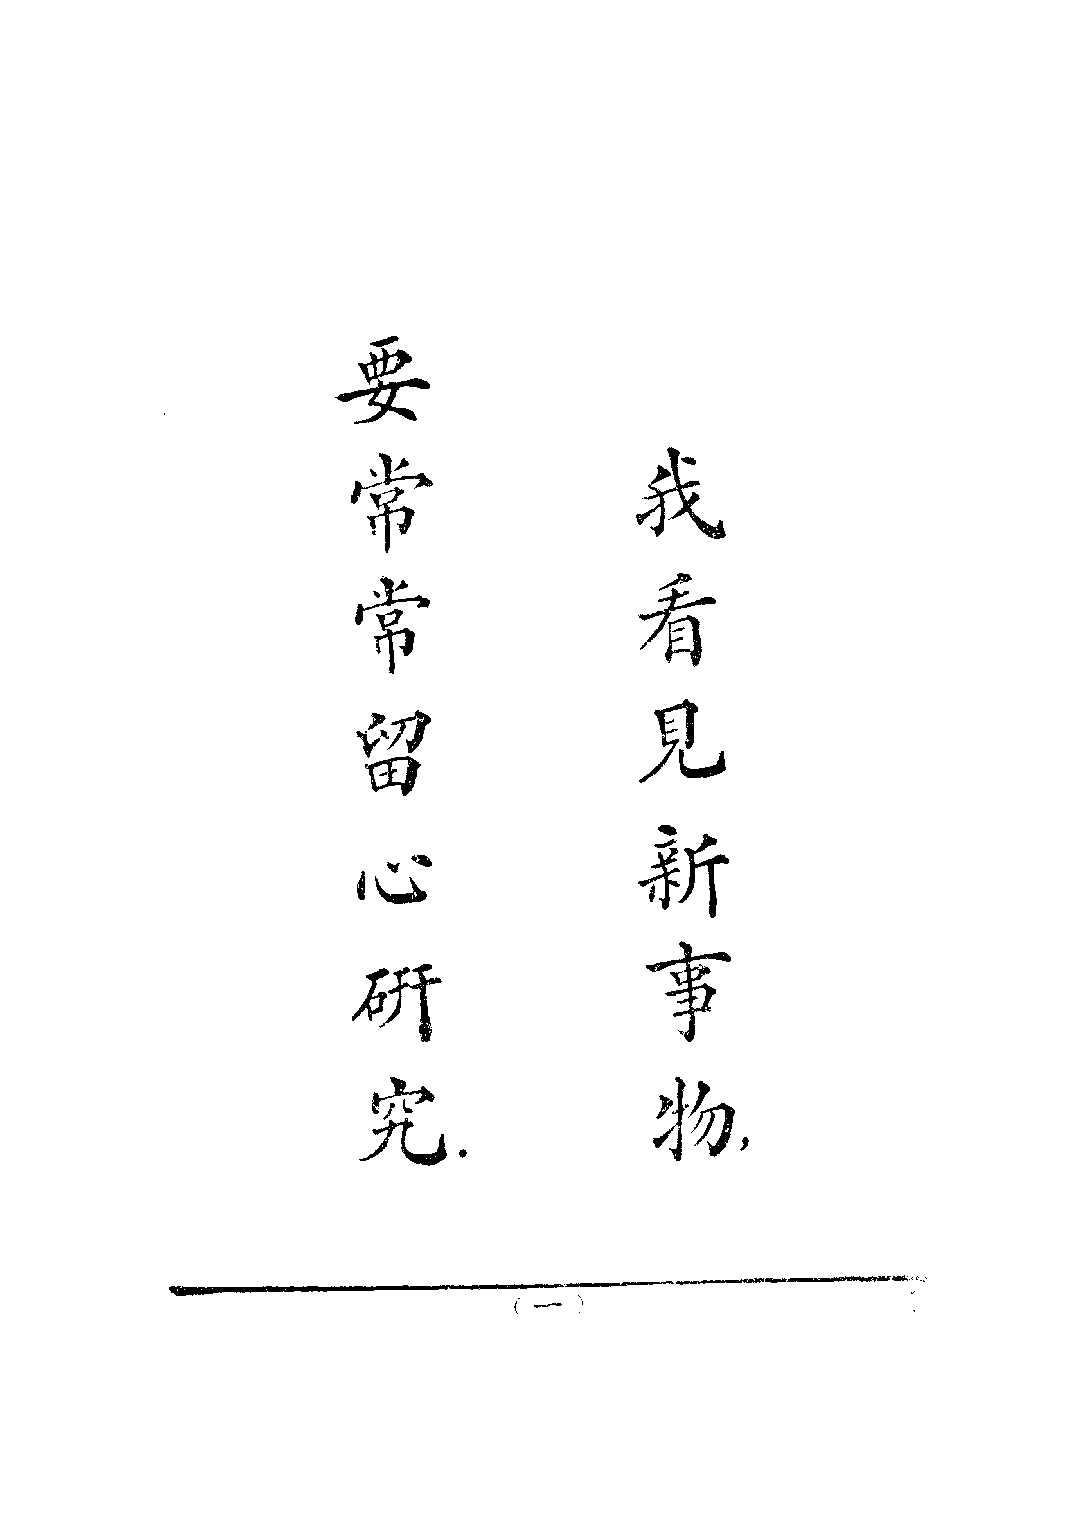 我看見新事物,
要常常留心研究.
(一)